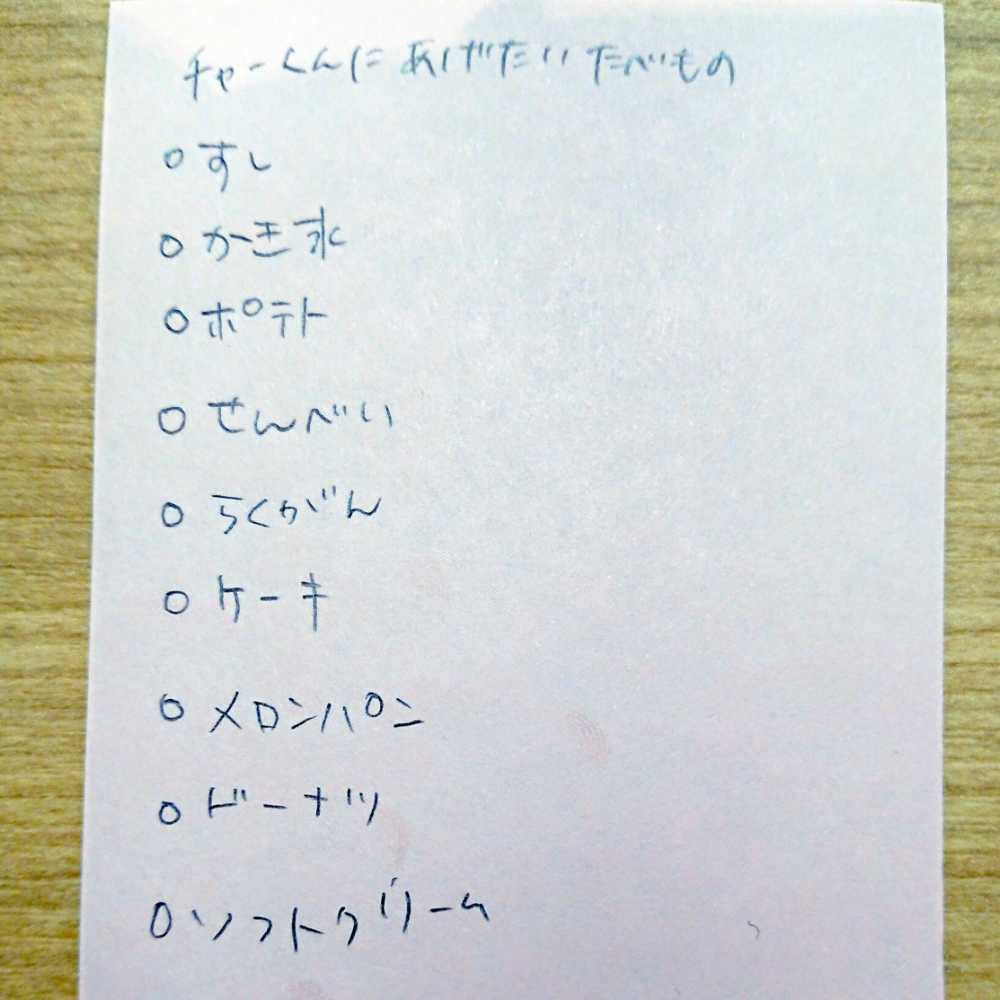 チャーくんにあげたいたべもの
○すし
○かき氷
○ポテト
○せんべい
○らくがん
○ケーキ
○メロンパン
○ドーナツ
○ソフトクリーム